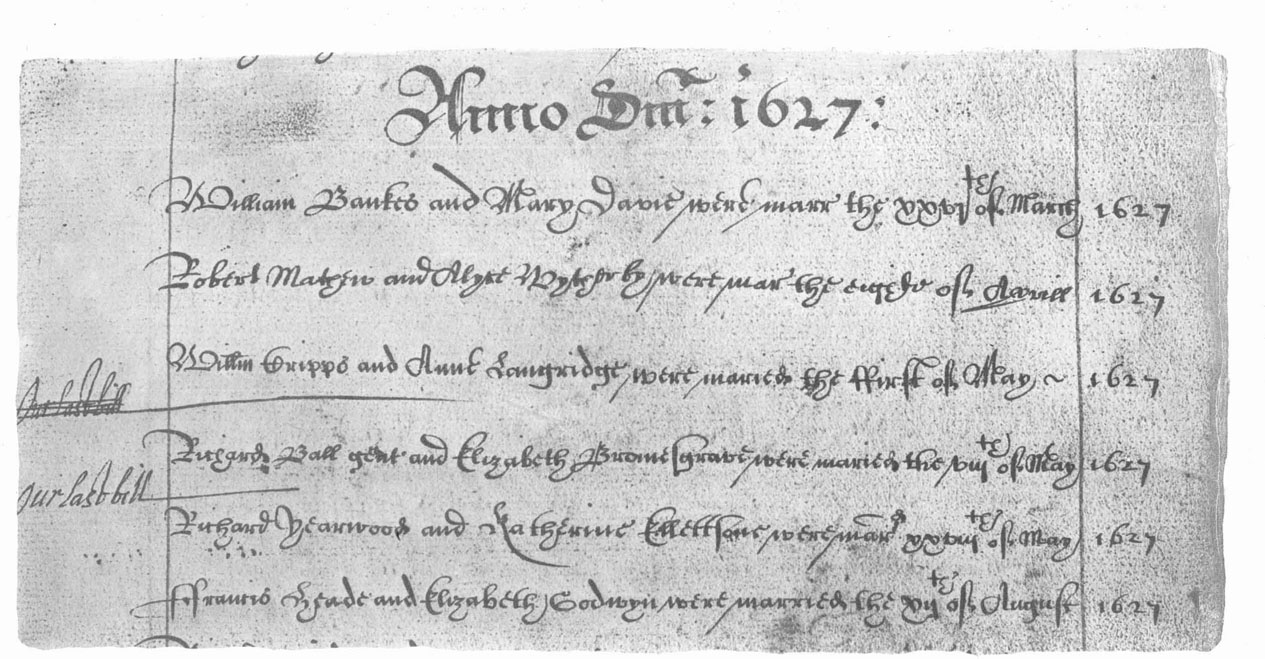 Anno Dm̄: 1627:
William Bankes and Mary Davie were marr the xxvjth of March 1627
Robert Mathew and Alyce were mar the eight of Aprill 1627
Willm Cripps and Anne Langridge were maried the ffirst of May 1627
Our last bill
Richard Ball gent and Elizabeth Bromesgrave were maried the viijth of May 1627
Our last bill
Richard Yearwood and Katherine Ellettsone were mar xxviijth of May 1627
ffrancis Heade and Elizabeth Godwyn were married the xijth of August 1627